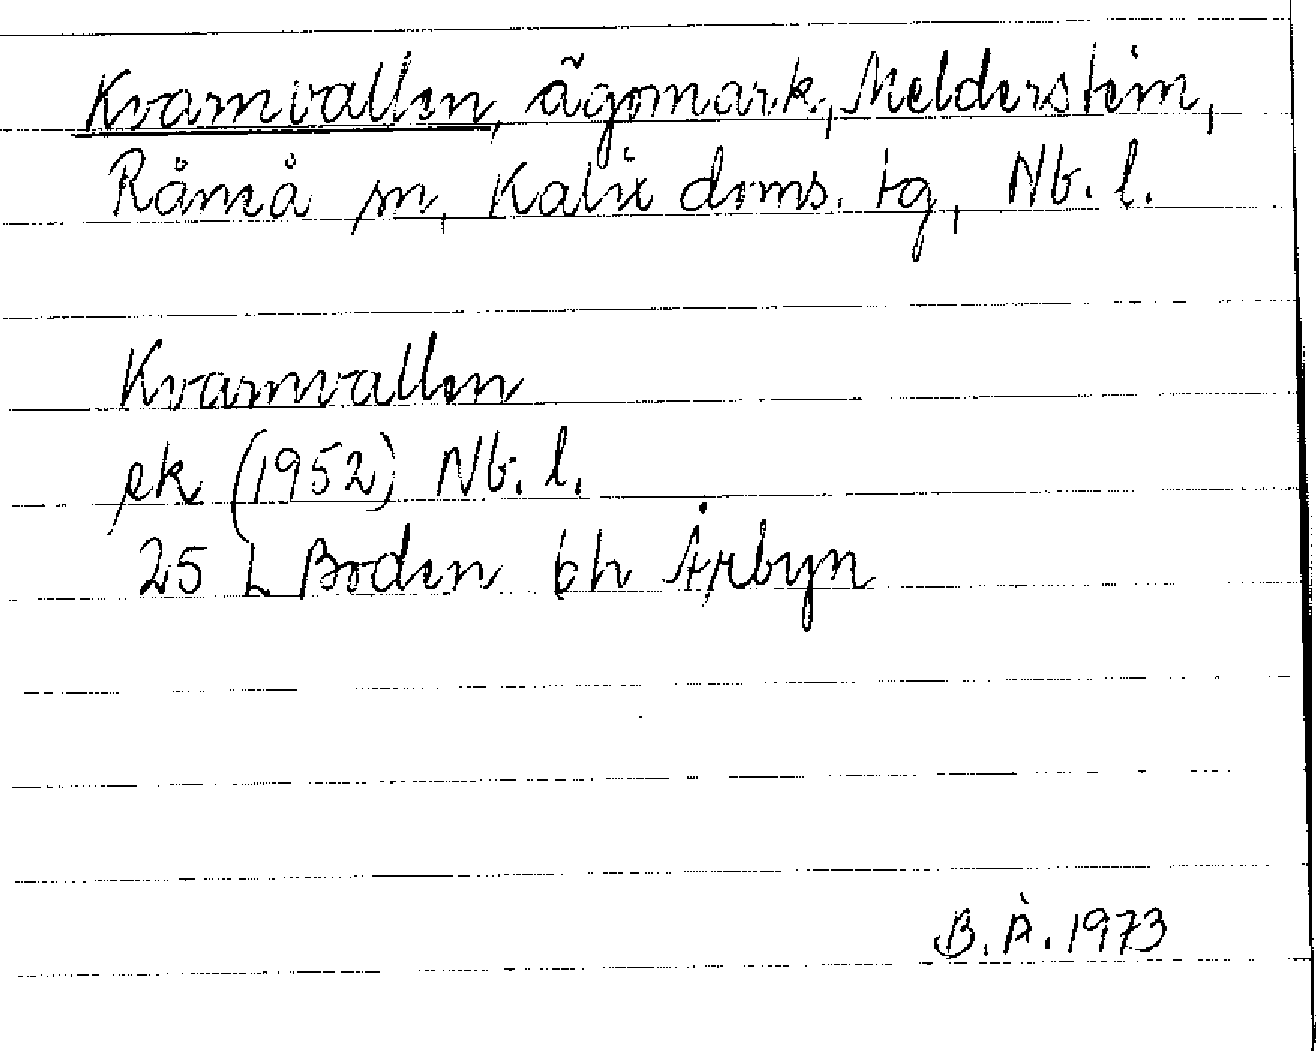 Kvarnvallen, ägomark, Melderstein,
Råneå sn, Kalix doms. tg, Nb. l.
Kvarnvallen
ek (1952) Nb. l.
25 L Boden 6h Årbyn
B. Å. 1973